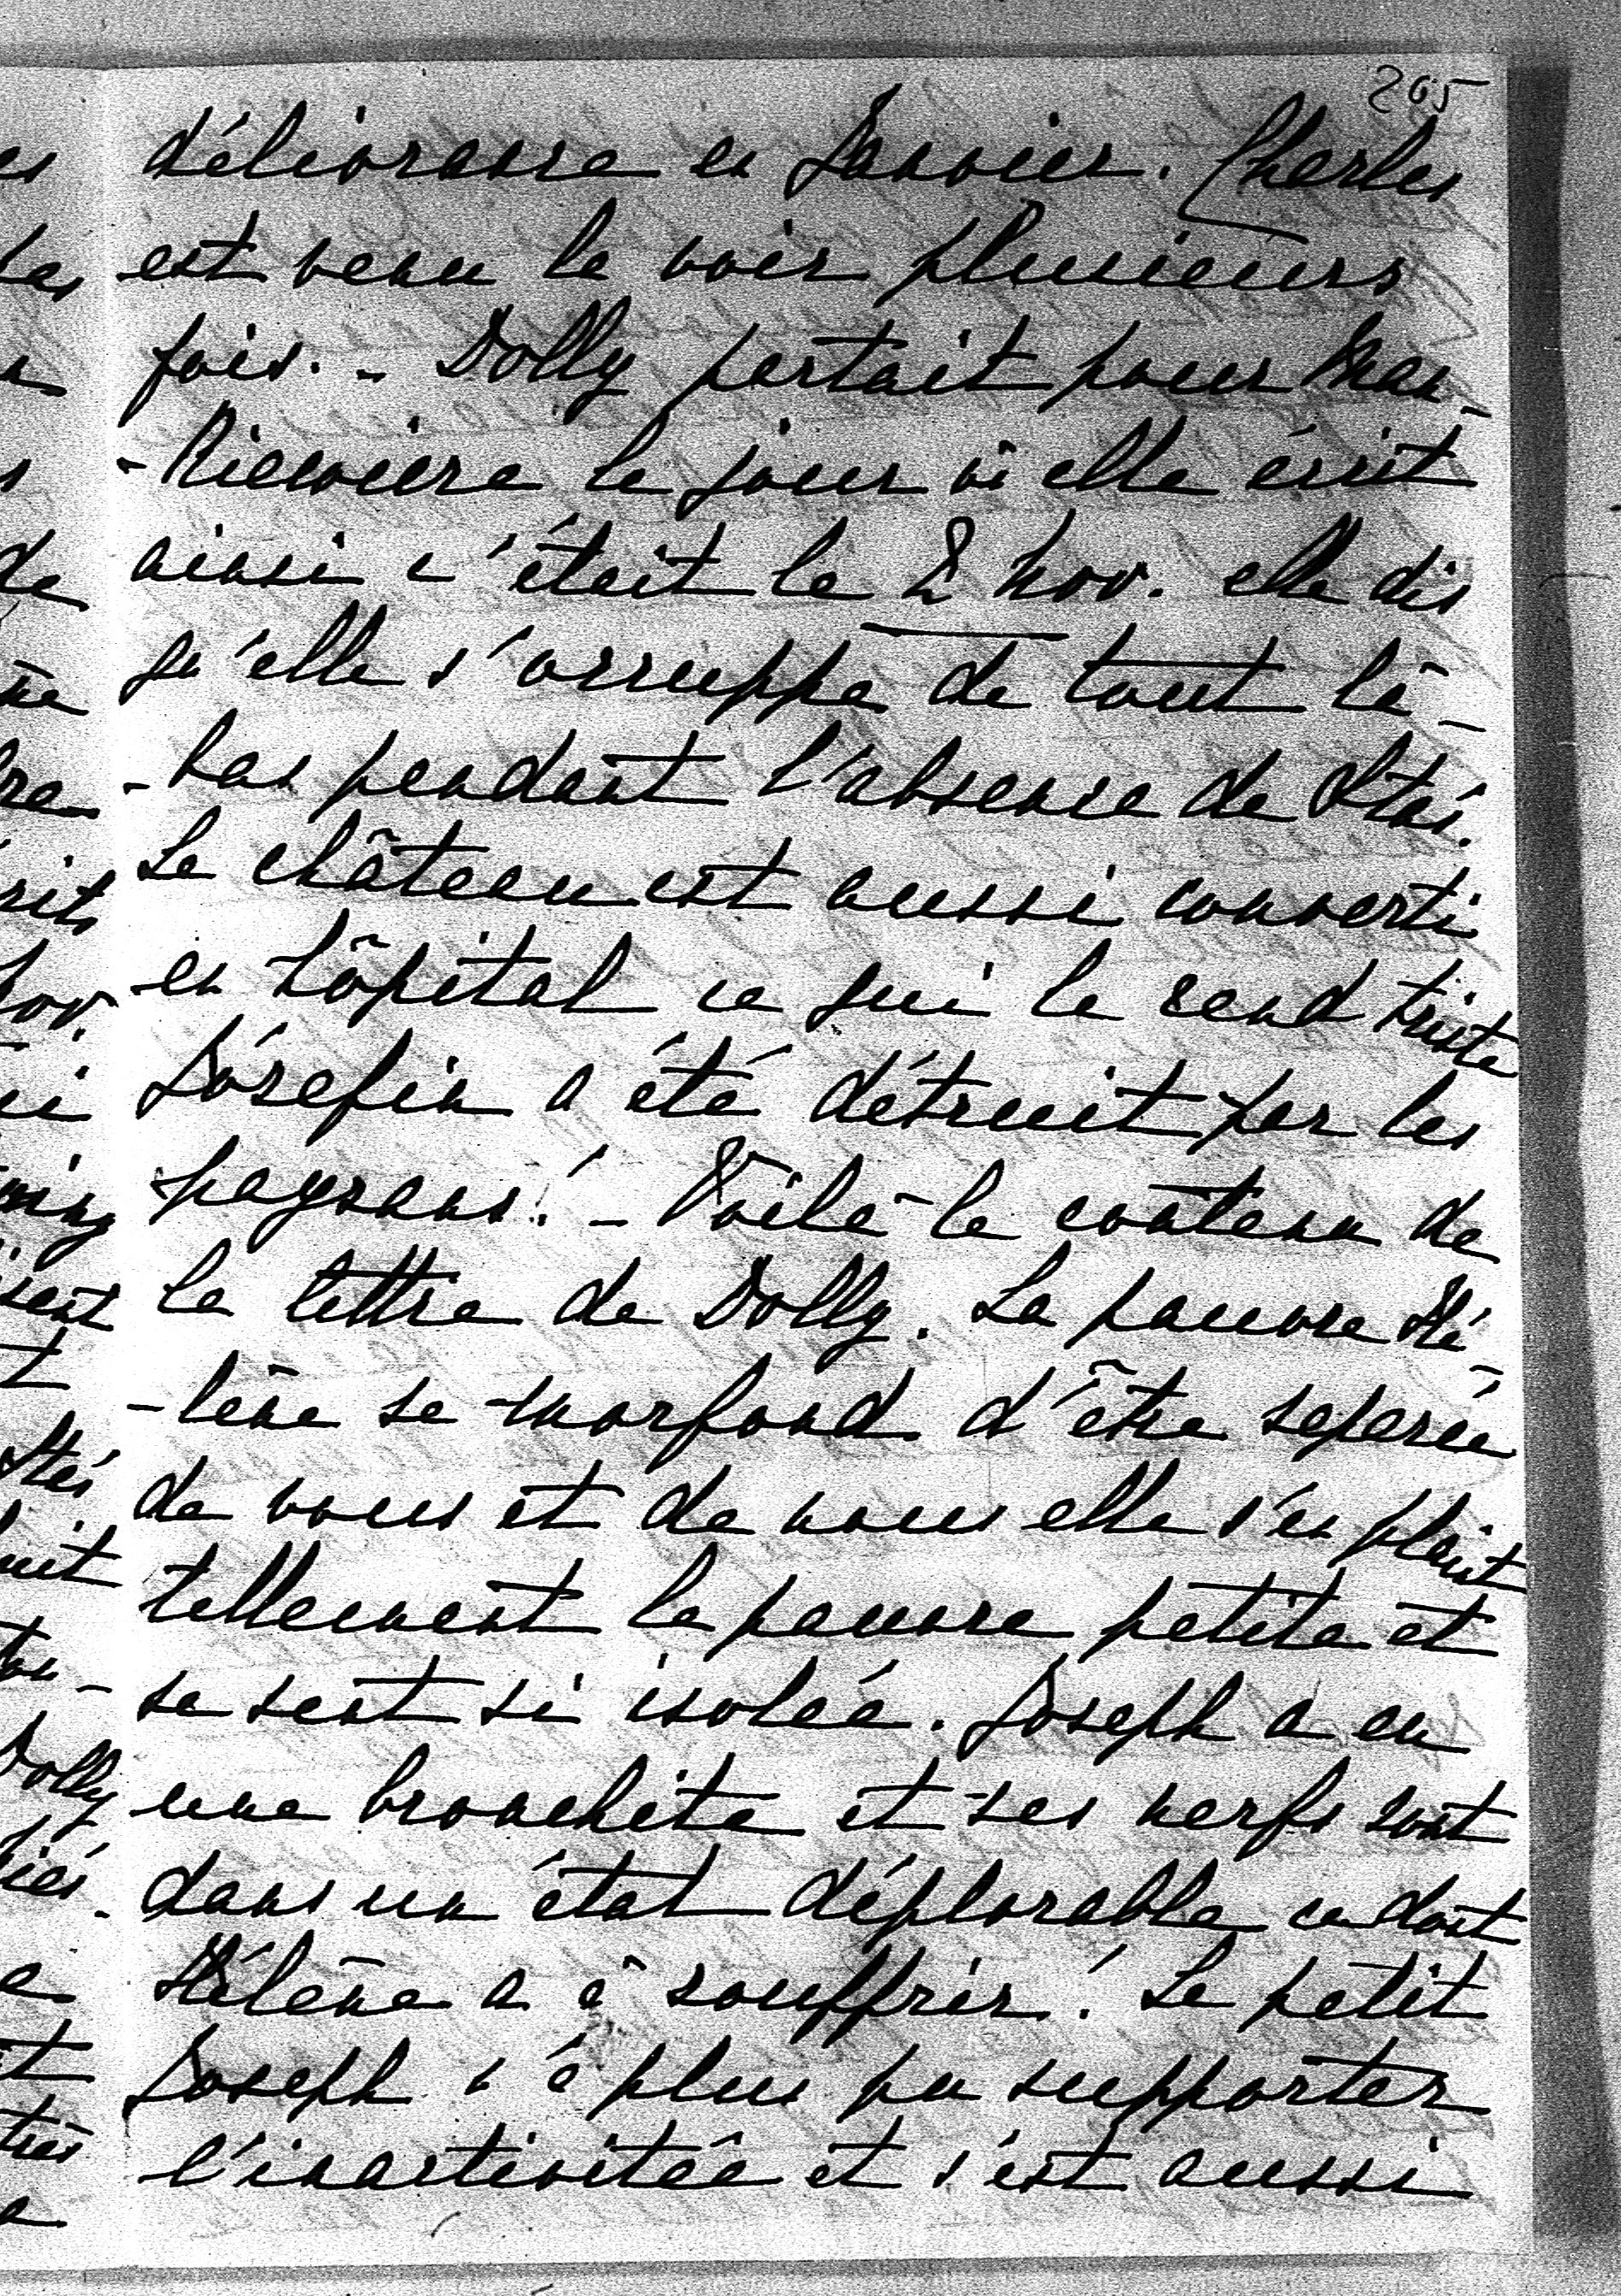 265
délivrance en Janvier. Charles
est venu la voir plusieurs
fois. - Dolly partait pour Man-
-Riewiere le jour où elle écrit
ainsi c'était le 2 Nov. elle dis
qu'elle s'occuppe de tout là-
-bas pendant l'absence de Stas.
Le château est aussi converti
en hôpital ce qui le rend triste
Józefin a été détruit par les
paysans! - Voilà le contenu de
la lettre de Dolly. La pauvre Hé-
-lène se morfond d'être separée
de vous et de nous elle s'en plaint
tellement la pauvre petite et
se sent si isolée. Joseph a eu
une bronchite et ses nerfs sont
dans un état déplorable ce dont
Hélène a à souffrir! Le petit
Joseph n'a plus pu supporter
l'inactivitée et s'est aussi